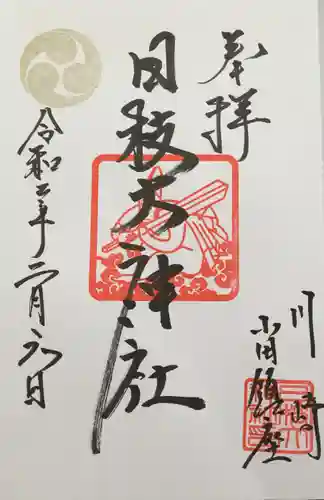 奉拝
日枝大神社
川崎
小田鎮座
令和二年二月六日